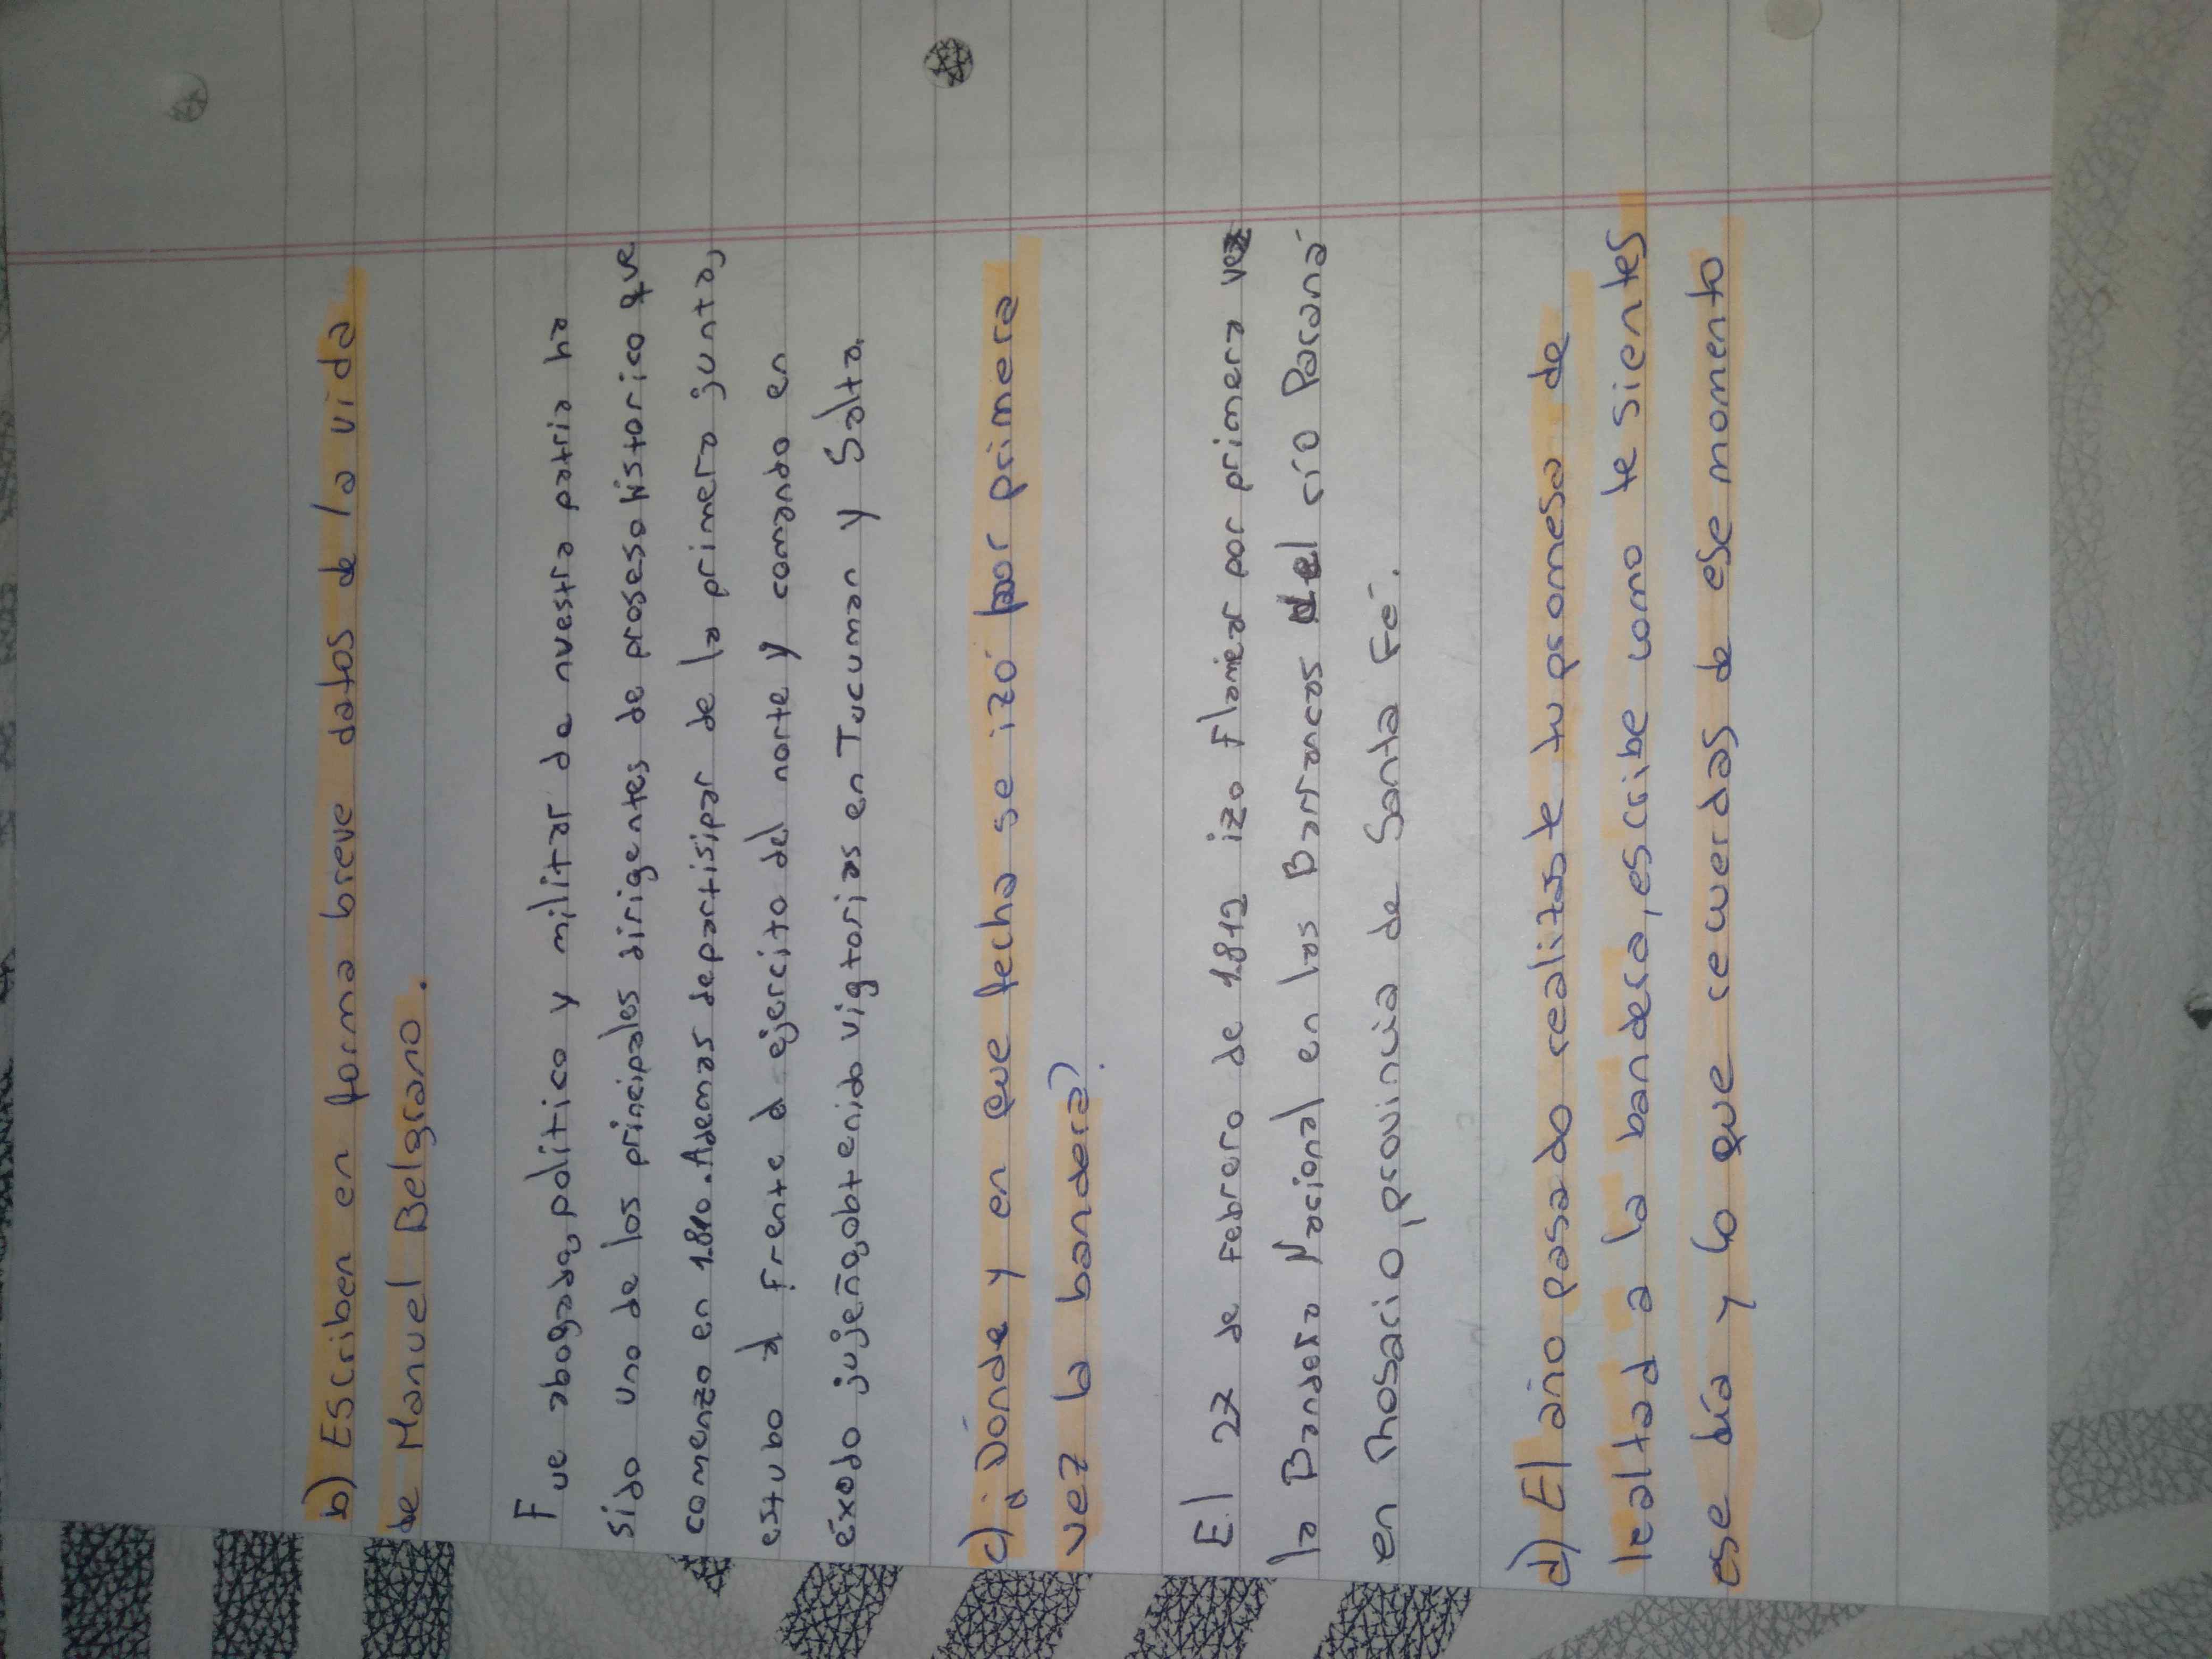 b) Escriben en forma breve datos de la vida
de Manuel Belgrano.
Fue abogado, politico y militar de nuestra patria ha
sido uno de los principales dirigentes de proseso historico que
comenzo en 1.810. Ademas departisipar de la primera junta,
estubo al frente al ejercito del norte y comando en
éxodo jujeño, obtenido vigtorias en Tucuman y Salta.
c) ¿Dónde y en que fecha se izó por primera
vez la bandera?
El 27 de Febrero de 1.812 izo Flamear por primera vez
la Bandera Nacional en las Barrancas del río Paraná
en Rhosario, provincia de Santa Fé.
d) El año pasado realizaste tu promesa de
lealtad a la bandera, escribe como te sientes
ese día y lo que recuerdas de ese momento